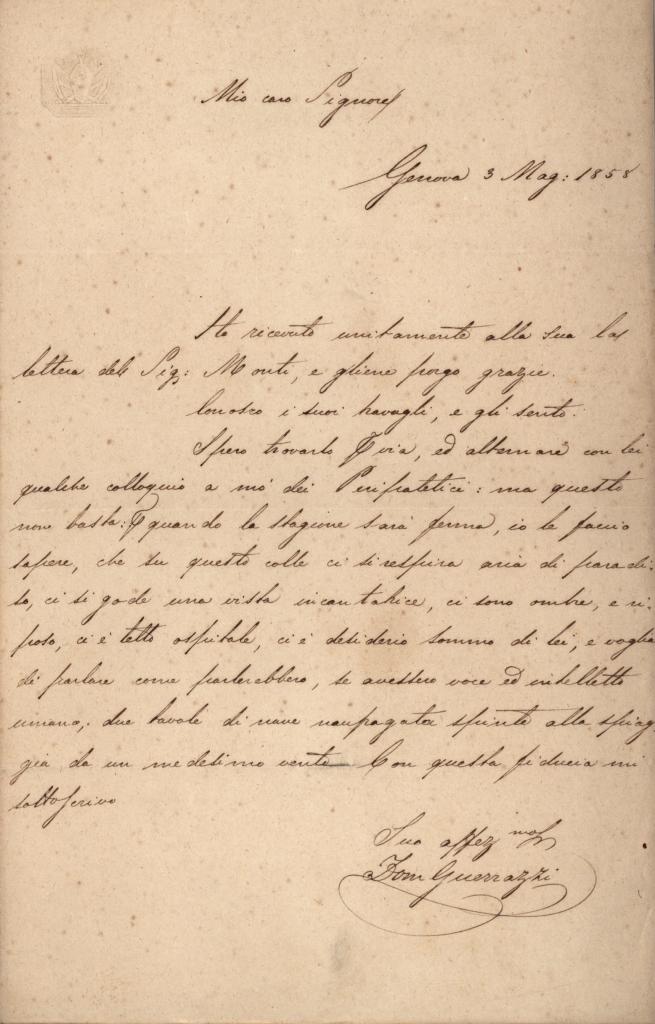 Mio caro Signore
Genova 3 Mag: 1858
Ho ricevuto unitamente alla sua la
lettera del Sig: Monti, e gliene porgo grazie.
Conosco i suoi travagli, e gli sento.
Spero trovarlo via, ed alternare con lei
qualche colloquio a mo' dei Peripatetici: ma questo
non basta: quando la stagione sarà ferma, io le faccio
sapere, che su questo colle ci si respira aria di paradi-
so, ci si gode una vista incantatrice, ci sono ombre, e ri-
poso, ci è tetto ospitale, ci è desiderio sommo di lei, e voglia
di parlare come parlerebbero, se avessero voce ed intelletto
umano, due tavole di nave naufragata spinte alla spiag-
gia da un medesimo vento — Con questa fiducia mi
sottoscrivo
Suo affez mo
Dom Guerrazzi